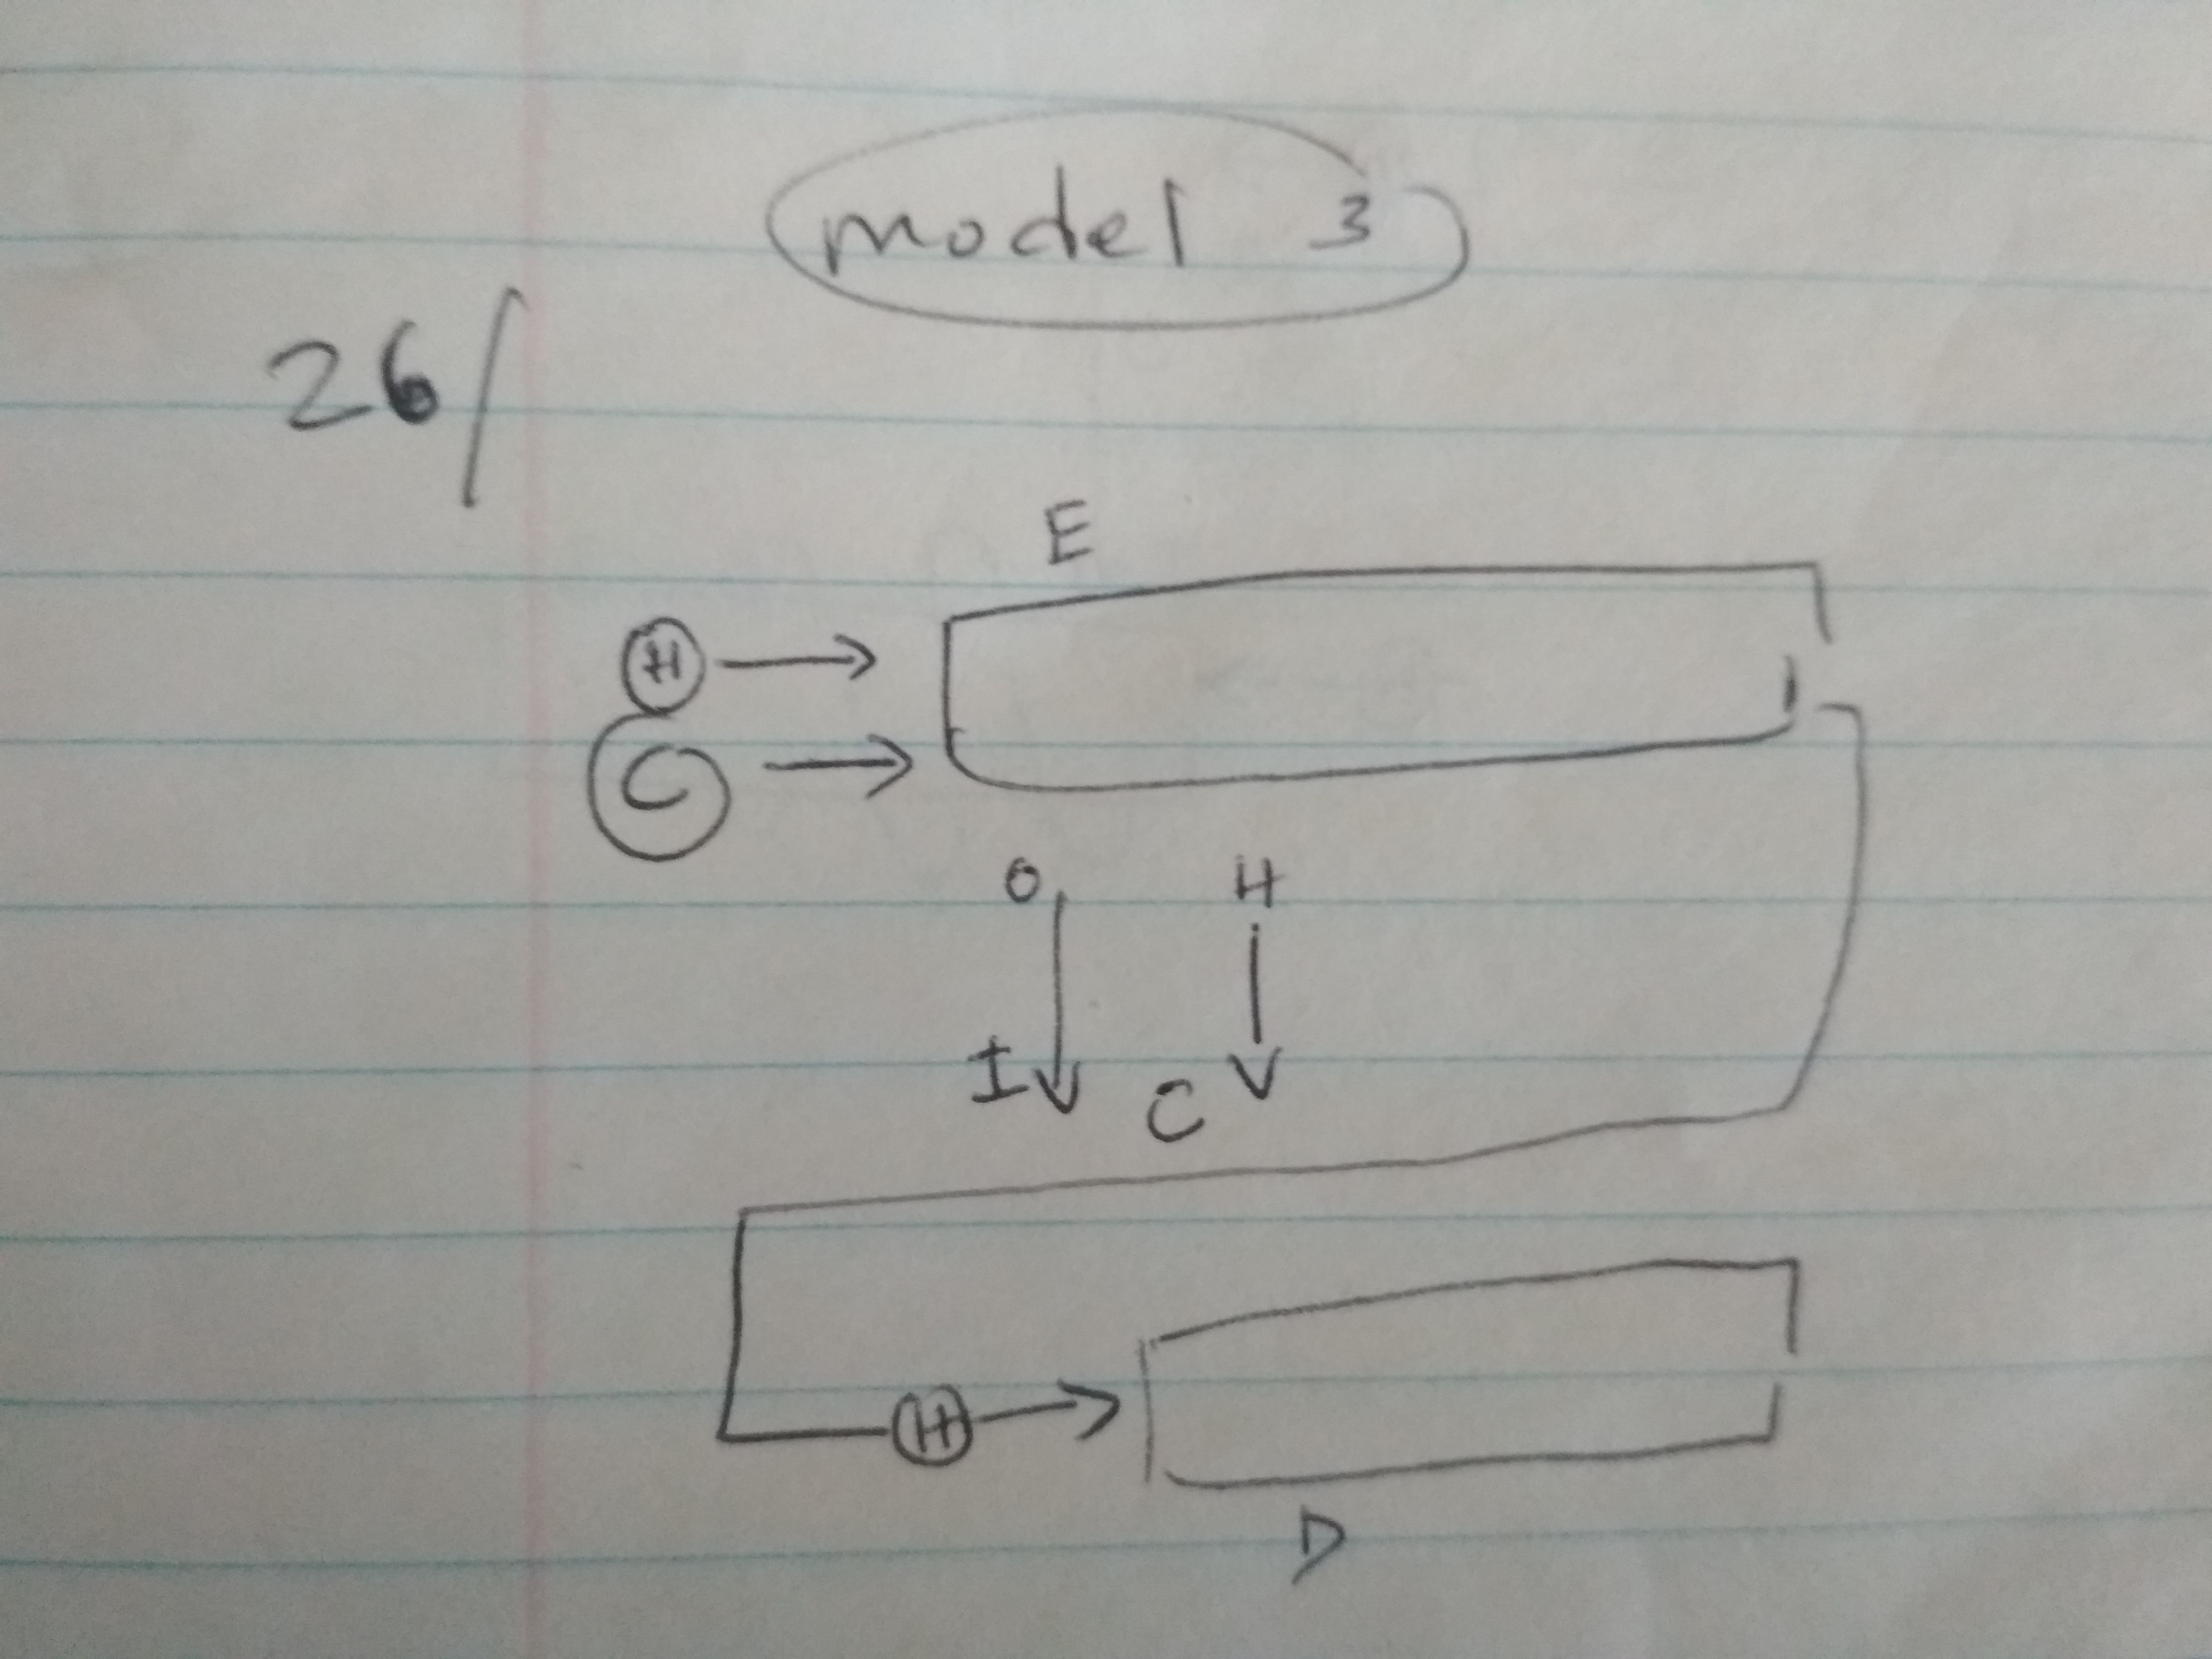 model 3
26/
E
H
C
O H
I C
H
D